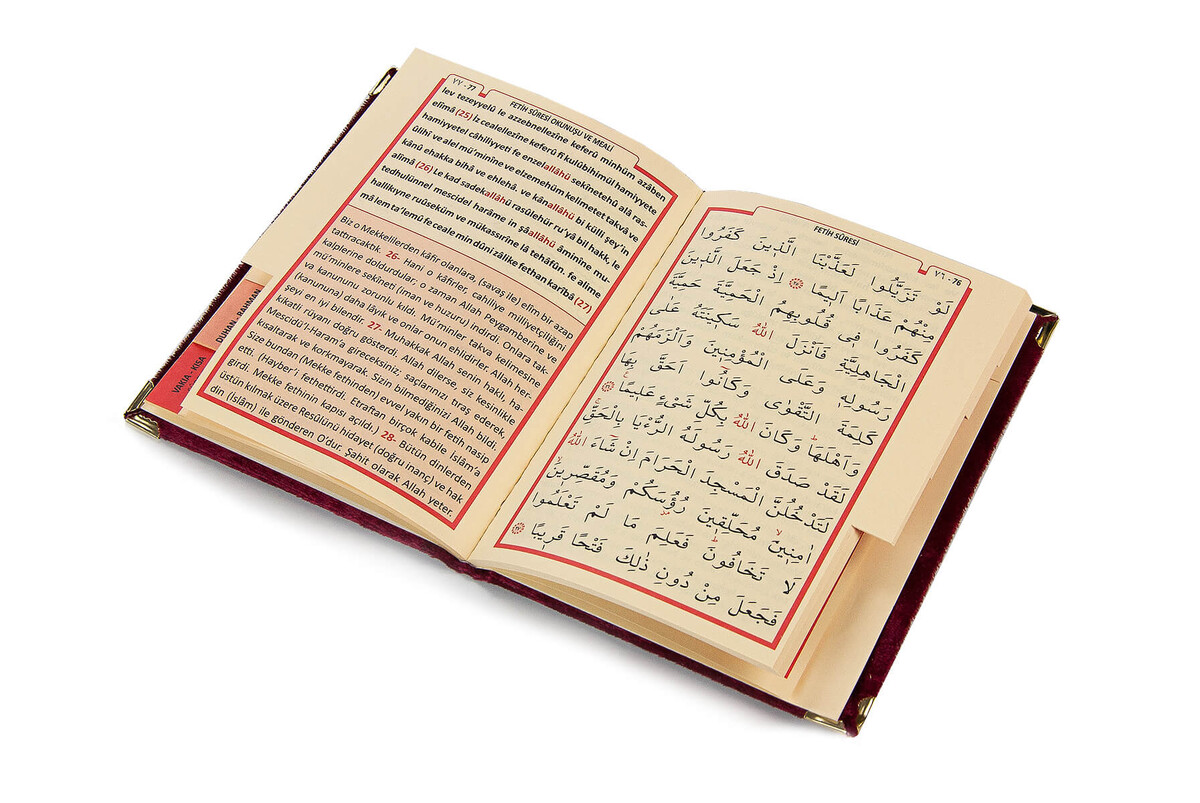 ٧٧ - 77
FETİH SÛRESİ OKUNUŞU VE MEALİ
lev tezeyyelû le azzebnellezîne keferû minhüm azâben
elîmâ (25) İz cealellezîne keferû fî kulûbihimül hamiyyete
hamiyyetel câhiliyyeti fe enzelallâhü sekînetehû alâ ras-
ûlihî ve alel mü'minîne ve elzemehüm kelimetet takvâ ve
kânû ehakka bihâ ve ehlehâ. ve kânallâhü bi külli şey'in
alîmâ (26) Le kad sadekallâhü rasûlehür ru'yâ bil hakk, le
tedhulünnel mescidel harâme in şâallâhü âminîne mu-
hallikıyne ruûseküm ve mükassırîne lâ tehâfûn. fe alime
mâ lem ta'lemû fe ceale min dûni zâlike fethan karîbâ (27)
Biz o Mekkelilerden kâfir olanlara, (savaş ile) elîm bir azap
tattıracaktık. 26- Hani o kâfirler, cahiliye milliyetçiliğini,
kalplerine doldurdular; o zaman Allah Peygamberine ve
mü'minlere sekîneti (iman ve huzuru) indirdi. Onlara tak-
va kanununu zorunlu kıldı. Mü'minler takva kelimesine
(kanununa) daha lâyık ve onlar onun ehlidirler. Allah her-
şeyi en iyi bilendir. 27- Muhakkak Allah senin haklı, ha-
kikatli rüyanı doğru gösterdi. Allah dilerse, siz kesinlikle
Mescidü'l-Haram'a gireceksiniz; saçlarınızı tıraş ederek,
kısaltarak ve korkmayarak. Sizin bilmediğinizi Allah bildi.
Size bundan (Mekke fethinden) evvel yakın bir feth nasip
etti. (Hayber'i fethettirdi. Etraftan birçok kabile İslam'a
girdi. Mekke fethinin kapısı açıldı.) 28- Bütün dinlerden
üstün kılmak üzere Resûlünü hidayet (doğru inanç) ve hak
din (İslâm) ile gönderen O'dur. Şahit olarak Allah yeter.
DUHAN - RAHMAN
VAKIA - KISA
FETİH SÛRESİ
٧٦ - 76
لَوْ تَزَيَّلُوا لَعَذَّبْنَا الَّذِينَ كَفَرُوا
مِنْهُمْ عَذَابًا اَلِيمًا ﴿٢٥﴾ اِذْ جَعَلَ الَّذِينَ
كَفَرُوا فِى قُلُوبِهِمُ الْحَمِيَّةَ حَمِيَّةَ
الْجَاهِلِيَّةِ فَاَنْزَلَ اللّٰهُ سَكِينَتَهُ عَلَى
رَسُولِهِ وَعَلَى الْمُؤْمِنِينَ وَاَلْزَمَهُمْ
كَلِمَةَ التَّقْوٰى وَكَانُوا اَحَقَّ بِهَا
وَاَهْلَهَا وَكَانَ اللّٰهُ بِكُلِّ شَىْءٍ عَلِيمًا ﴿٢٦﴾
لَقَدْ صَدَقَ اللّٰهُ رَسُولَهُ الرُّءْيَا بِالْحَقِّ
لَتَدْخُلُنَّ الْمَسْجِدَ الْحَرَامَ اِنْ شَاءَ اللّٰهُ
اٰمِنِينَ مُحَلِّقِينَ رُؤُسَكُمْ وَمُقَصِّرِينَ
لَا تَخَافُونَ فَعَلِمَ مَا لَمْ تَعْلَمُوا
فَجَعَلَ مِنْ دُونِ ذٰلِكَ فَتْحًا قَرِيبًا ﴿٢٧﴾